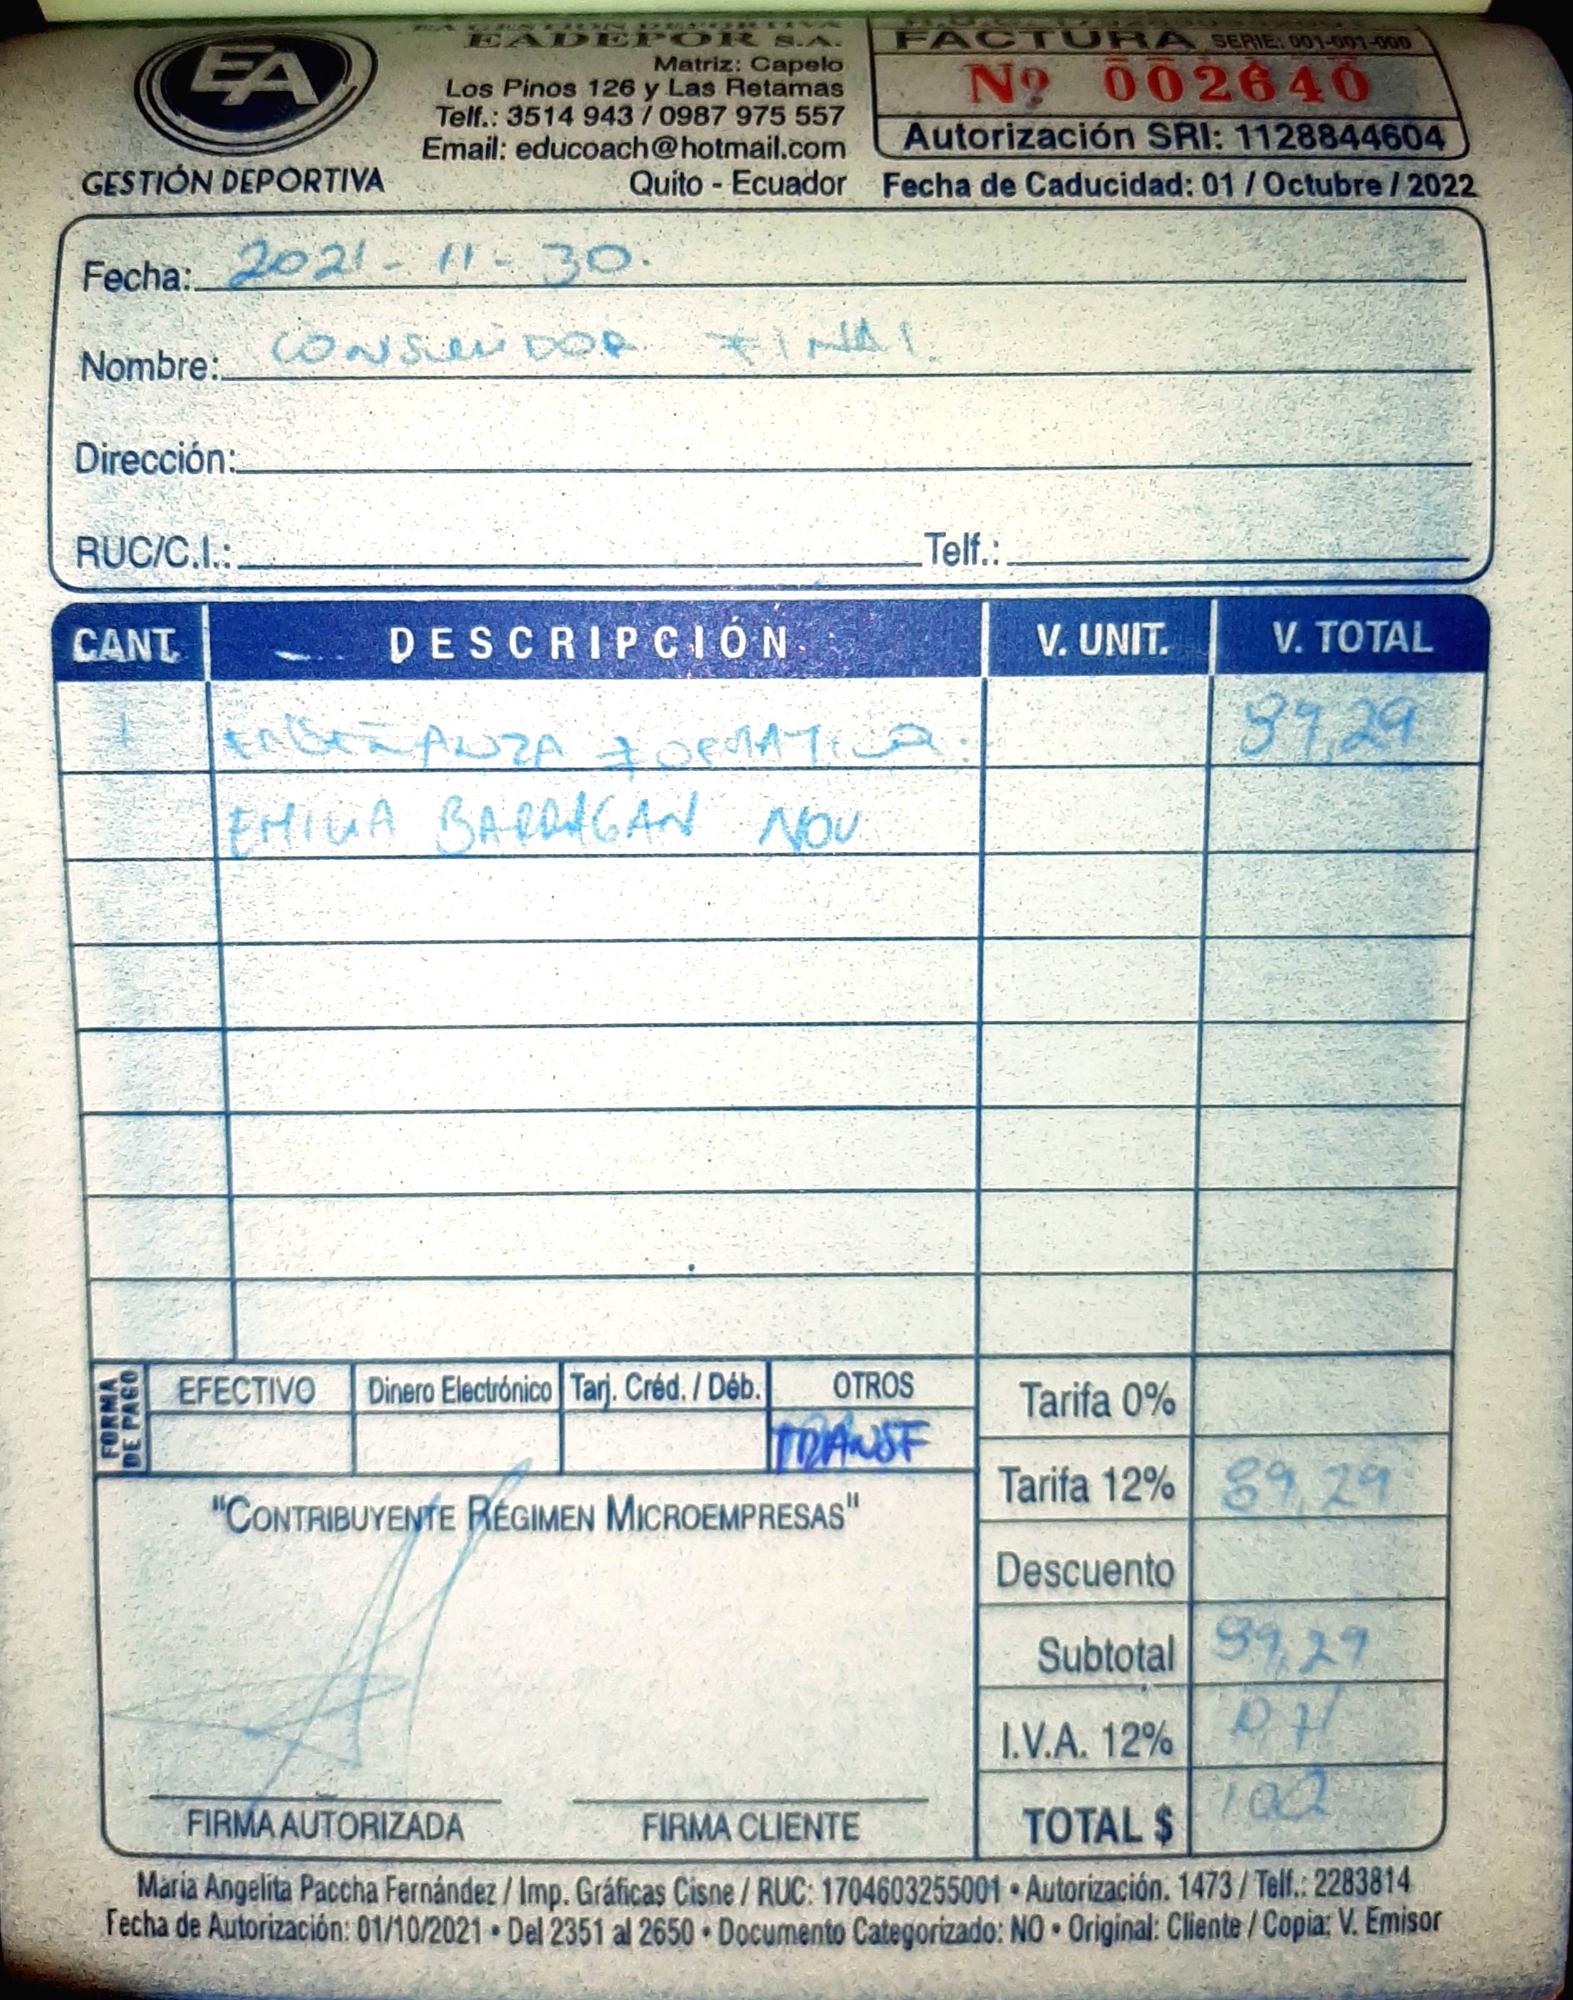 EA
GESTIÓN DEPORTIVA
EADEPOR S.A.
Matriz: Capelo
Los Pinos 126 y Las Retamas
Telf.: 3514 943 / 0987 975 557
Email: educoach@hotmail.com
Quito - Ecuador
FACTURA SERIE: 001-001-000
Nº 002640
Autorización SRI: 1128844604
Fecha de Caducidad: 01 / Octubre / 2022
Fecha: 2021-11-30.
Nombre: CONSUMIDOR FINAL.
Dirección:
RUC/C.I.: Telf.:
CANT. DESCRIPCIÓN V. UNIT. V. TOTAL
1 ENSEÑANZA FORMATIVA. 89,29
EMILIA BARRAGAN NOV
FORMA DE PAGO
EFECTIVO Dinero Electrónico Tarj. Créd. / Déb. OTROS
TRANSF
Tarifa 0%
Tarifa 12% 89,29
Descuento
Subtotal 89,29
I.V.A. 12%
TOTAL $ 100
"CONTRIBUYENTE RÉGIMEN MICROEMPRESAS"
FIRMA AUTORIZADA FIRMA CLIENTE
María Angelita Paccha Fernández / Imp. Gráficas Cisne / RUC: 1704603255001 • Autorización. 1473 / Telf.: 2283814
Fecha de Autorización: 01/10/2021 • Del 2351 al 2650 • Documento Categorizado: NO • Original: Cliente / Copia: V. Emisor